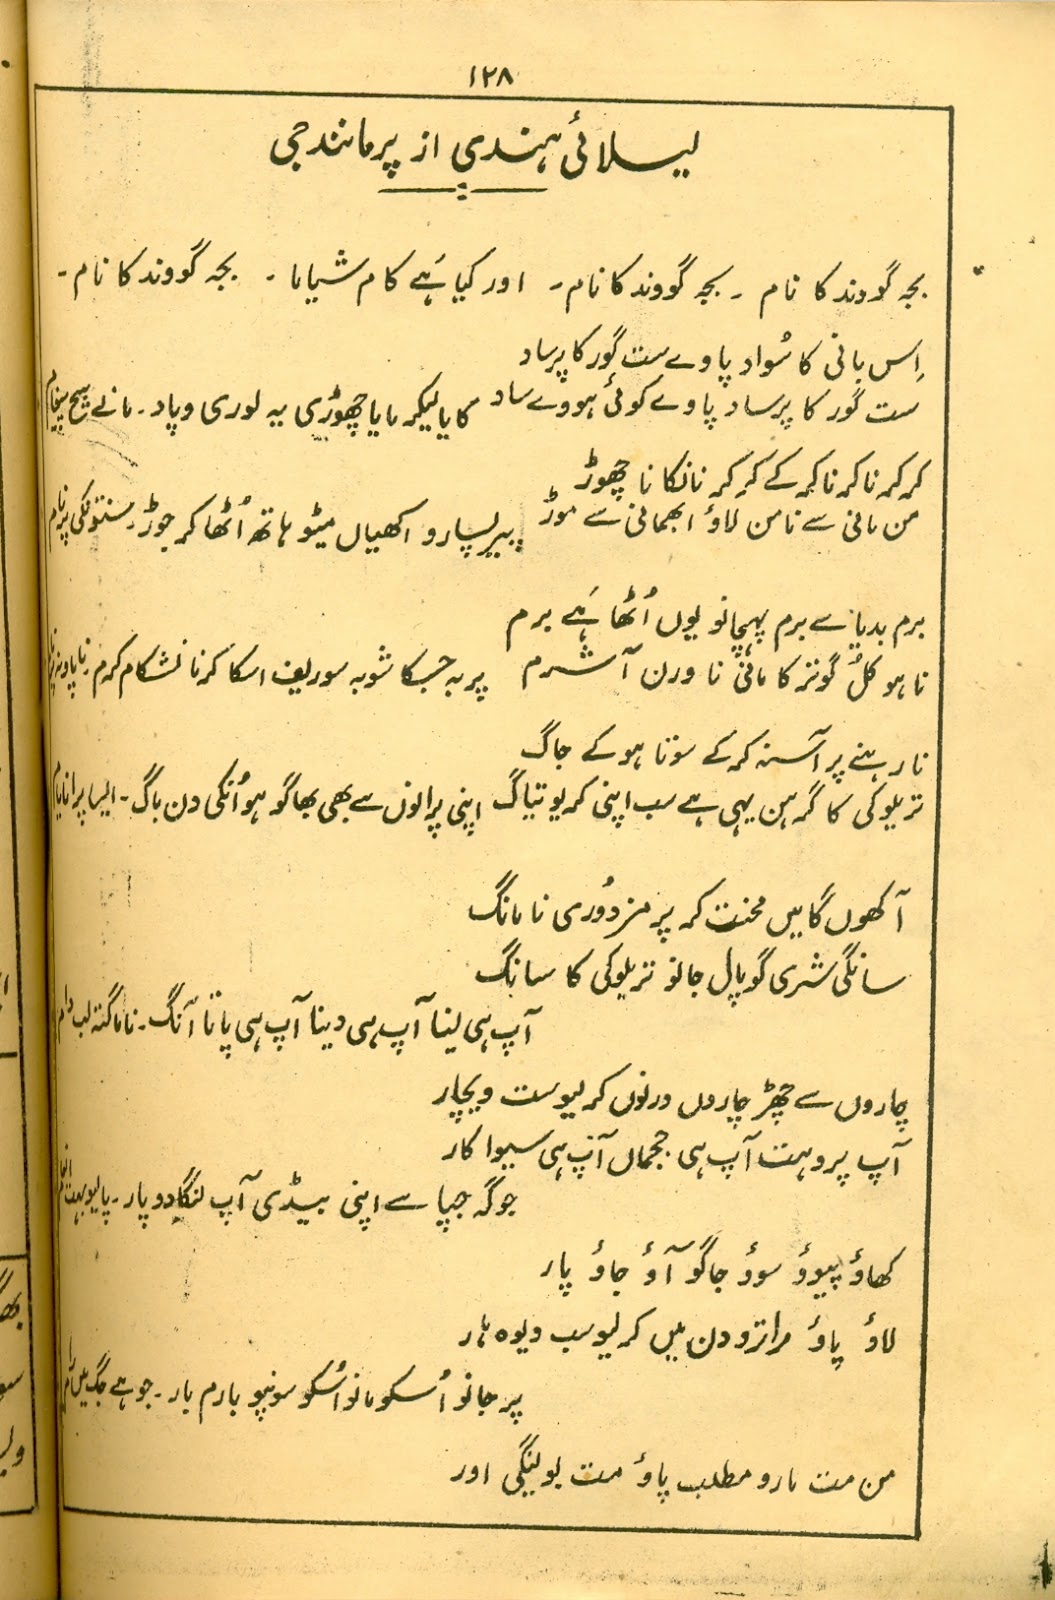 ۱۲۸
لیلائی ہندی از پرمانند جی
بجہ گووند کا نام ۔ بجہ گووند کا نام ۔ اور کیا ہَے کام شیاما ۔ بجہ گووند کا نام ۔
اِس بانی کا سُواد پاوے ست گور کا پرساد
ست گور کا پرساد پاوے کوئی ہووے ساد کایا لیکر مایا چھوڑی یہ لوری وپاد ۔ مانے
کر کر نا کر نا کر کے کر کر نانکا نا چھوڑ
من مانی سے نا من لاؤ ابھمانی سے موڑ پیر پسارو اکھیاں میٹو ہاتھ اُٹھا کر جوڑ ۔ سنتونکی پرنام
برم بدیا سے برم پہچانو یوں اُٹھا ہَے برم
نا ہو کلُ گوتر کا مانی نا ورن آشرم پر یہ جسکا شوبہ سوریف اسکا کرنا نشکام کرم ۔
نا رہنے پر آسنہ کر کے سوتا ہو کے جاگ
تریلوکی کا گرہن یہی ہے سب اپنی کریو تیاگ اپنی پرانوں سے بھی بھاگو ہو اُنکی دن باگ ۔ ایسا پرانایام
آکھوں گا میں محنت کر پر مزدُوری نا مانگ
سانگی شری گوپال جانو تریلوکی کا سانگ
آپ ہی لینا آپ ہی دینا آپ ہی پاتا آنگ ۔ نا ماگنہ لب دام
چاروں سے چھڑ چاروں ورنوں کر لیو ست ویچار
آپ پروہت آپ ہی ججمان آپ ہی سیوا کار
جوگہ جپا سے اپنی بیڈی آپ لنگادو پار ۔ پالیو بہت
کھاؤ پیوؤ سوؤ جاگو آؤ جاؤ پار
لاؤ پاؤ راترو دن میں کر لیو سب ویوہار
پر جانو اُسکو مانو اُسکو سونپو بارم بار ۔ جو ہے جگ میں رام
من مت مارو مطلب پاؤ مت بولینگی اور